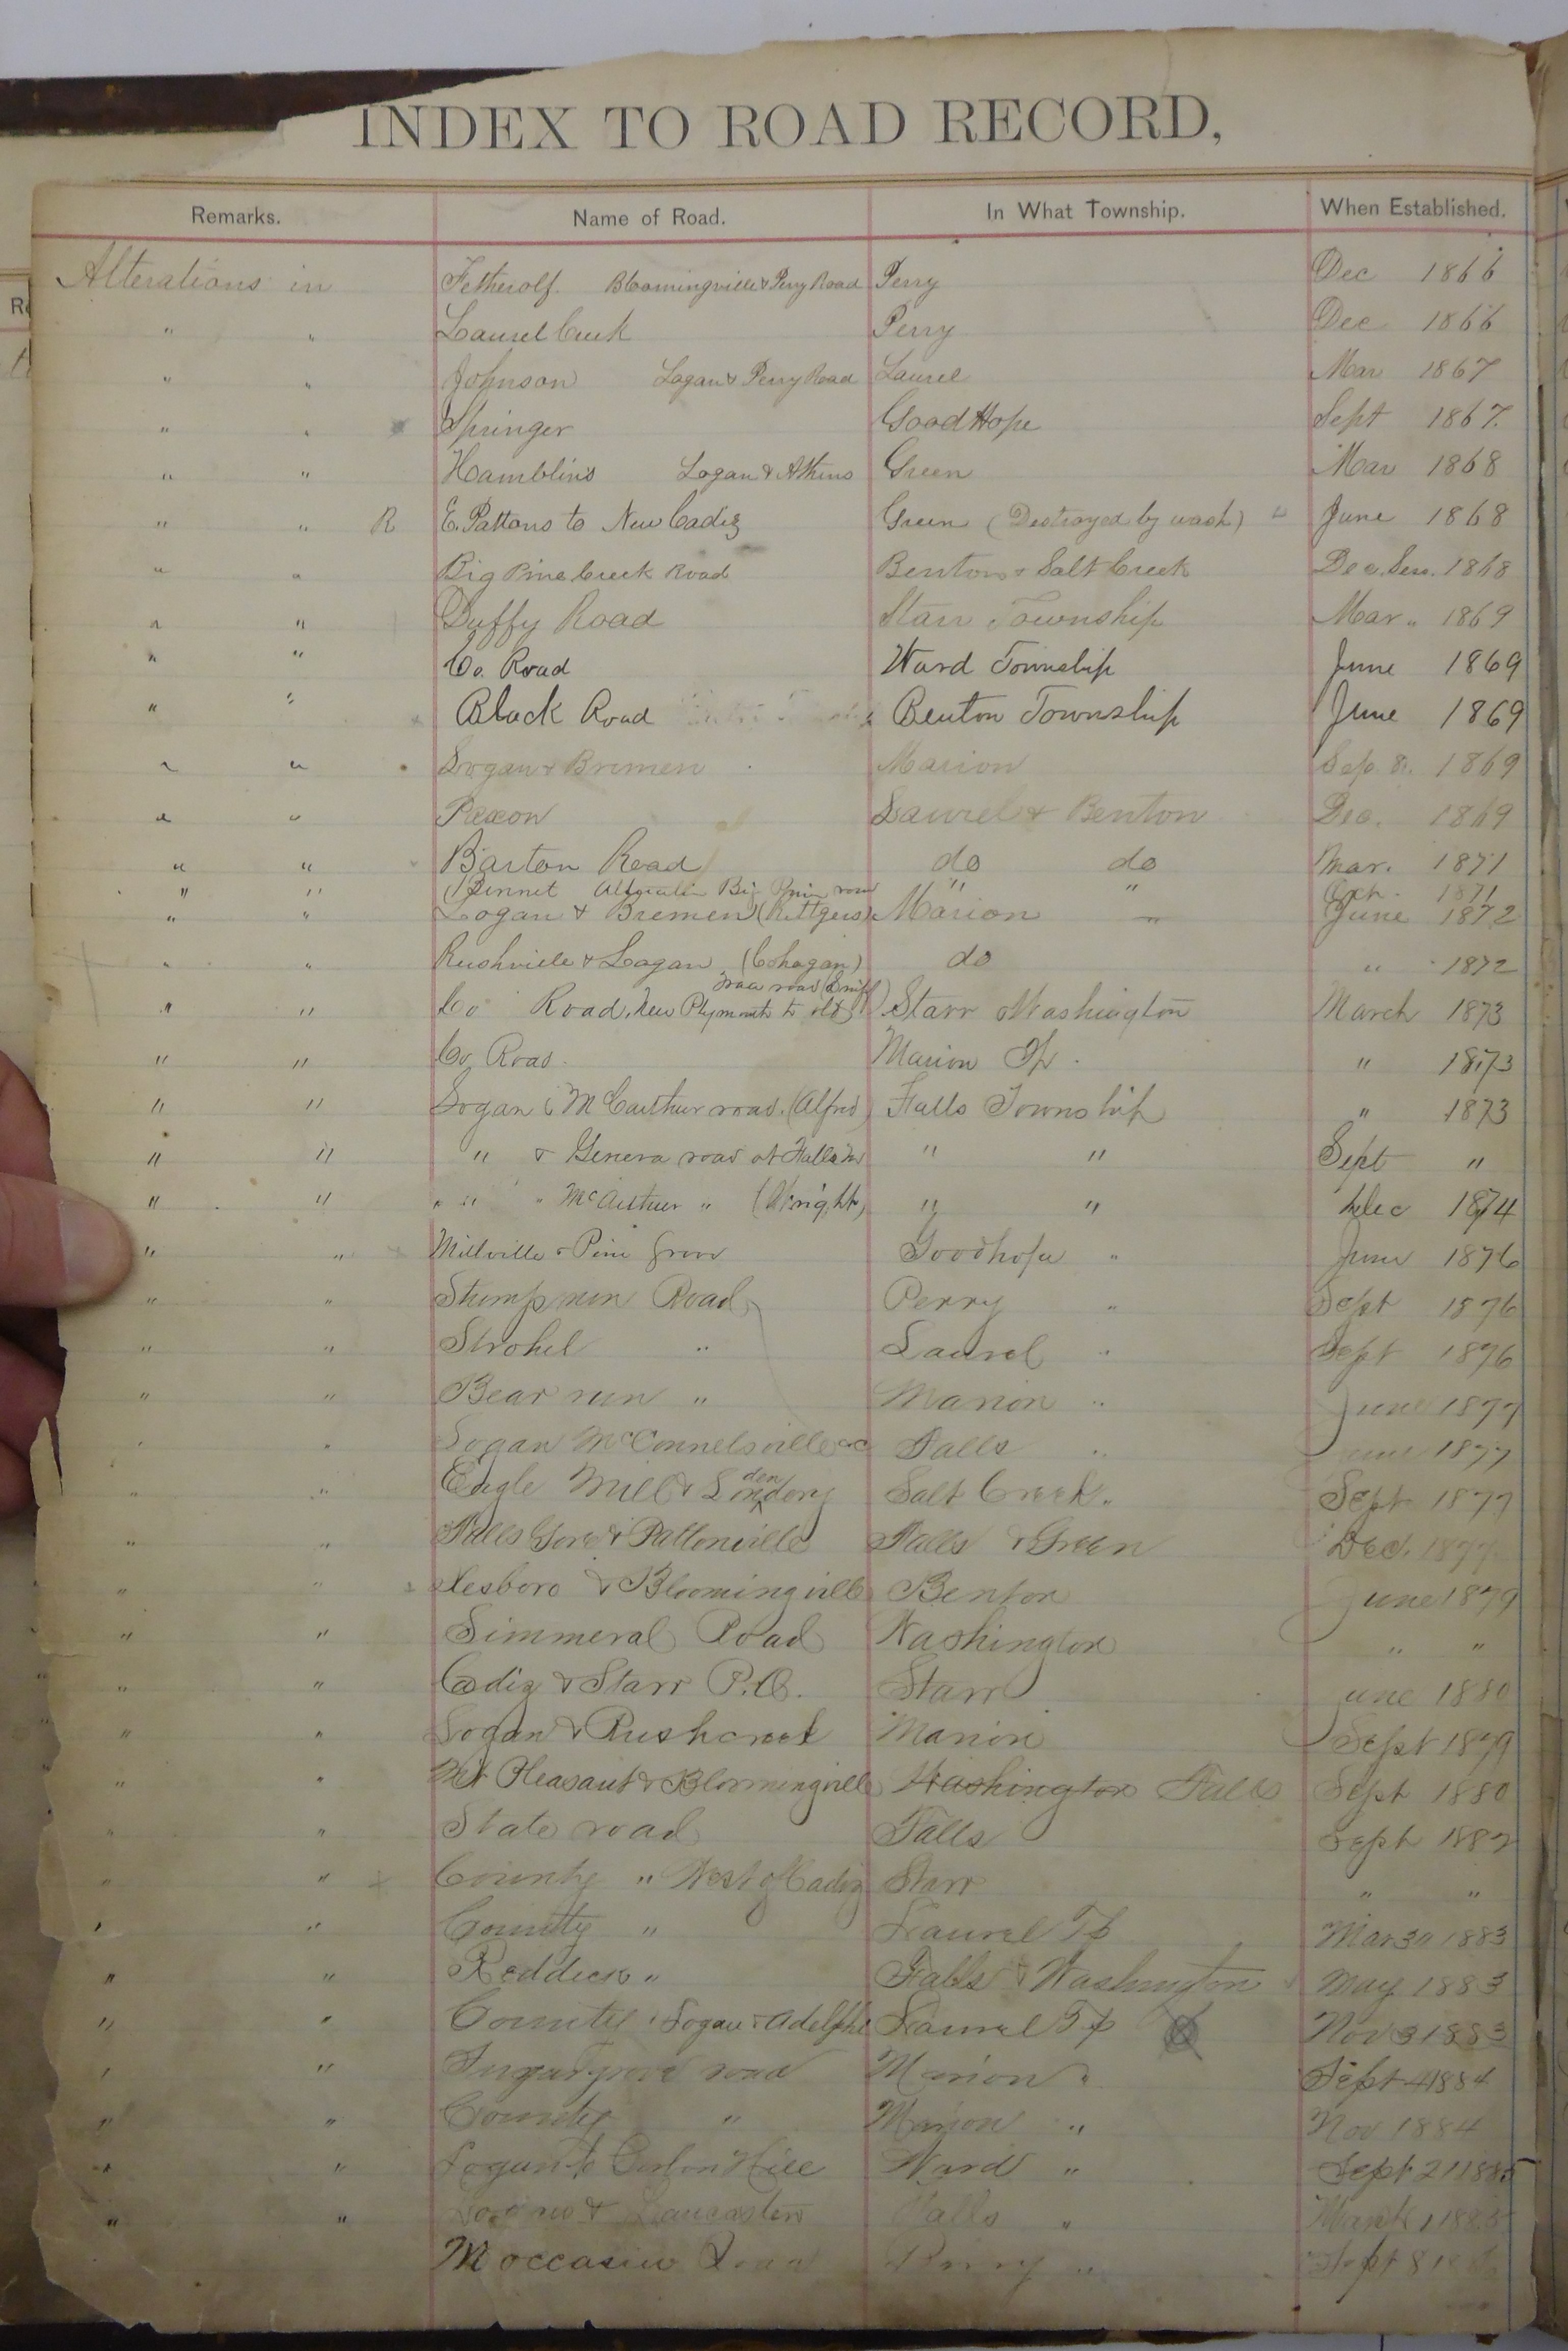 INDEX TO ROAD RECORD,
Remarks. Name of Road. In What Township. When Established.
Alterations in Fetherolf. Bloomingville & Perry Road Perry Dec 1866
" " Laurel Creek Perry Dec 1866
" " Johnson Logan & Perry Road Laurel Mar 1867
" " Springer Good Hope Sept 1867.
" " Hamblins Logan & Athens Green Mar 1868
" " R E. Pattons to New Cadiz Green (Destroyed by wash) June 1868
" " Big Pine Creek Road Benton & Salt Creek Dec. Sess. 1868
" " Duffy Road Starr Township Mar " 1869
" " Co. Road Ward Township June 1869
" " Black Road Benton Township June 1869
" " Logan & Bremen Marion Sep. 8. 1869
" " Rexon Laurel & Benton Dec. 1869
" " Barton Road do do Mar. 1871
" " (Bennet Big road " " Oct. 1871
" " Logan & Bremen (Rittgers) Marion " June 1872
" " Rushville & Logan (Cohagan) do " 1872
" " Co Road, New Plymouth to old road Starr & Washington March 1873
" " Co Road. Marion Tp. " 1873
" " Logan & McCarthur road. (Alfred) Falls Township " 1873
" " " & Geneva road at Falls " " Sept "
" " " " " McArthur " (Wright) " " Dec 1874
" " Millville & Pine Grove Goodhope " June 1876
" " Stump run Road Perry " Sept 1876
" " Strohel " Laurel " Sept 1876
" " Bear run " Marion " June 1877
" " Logan McConnelsville &c Falls " June 1877
" " Eagle Mill & Salt Creek " Sept 1877
" " Falls Gore & Pattonville Falls & Green Dec. 1877
" " Ilesboro & Bloomingville Benton June 1879
" " Simmeral Road Washington " "
" " Cadiz & Starr P.O. Starr June 1880
" " Logan & Rushcreek Marion Sept 1879
" " Mt Pleasant & Bloomingville Washington Falls Sept 1880
" " State road Falls Sept 1882
" " County " West of Cadiz Starr " "
" " County " Laurel Tp Mar 30 1883
" " Reddick " Falls & Washington May 1883
" " County Logan & Adelphi Laurel Tp Nov 3 1883
" " Sugargrove road Marion " Sept 4 1884
" " County " Marion " Nov 1884
" " Logan to Carbon Hill Ward " Sept 21 1885
" " Logan & Lancaster Falls " March 1885
Moccasin Road Perry " Sept 8